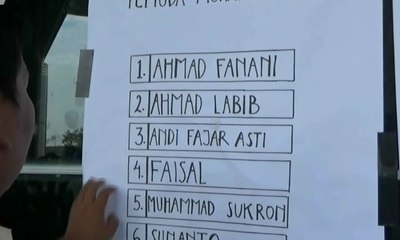 PEMUDA
1. AHMAD FANANI
2. AHMAD LABIB
3. ANDI FAJAR ASTI
4. FAISAL
5. MUHAMMAD SUKRON
6. SUNANTO